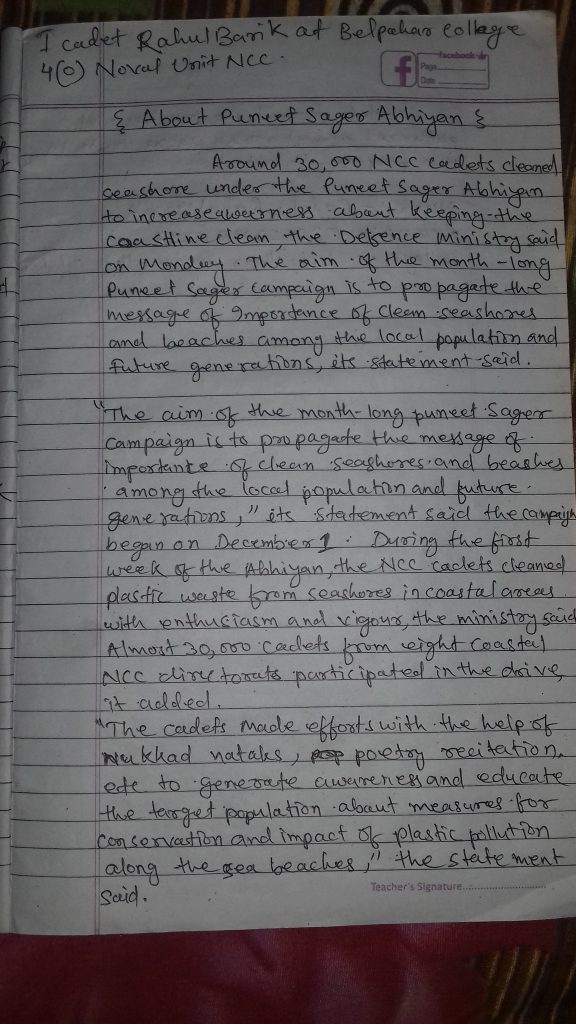 I cadet Rahul Barik at Belpahar college
4(O) Noval Unit NCC.
facebook
Page
Date
{ About Puneet Sager Abhiyan }
Around 30,000 NCC cadets cleaned
seashore under the Puneet Sager Abhiyan
to increase awerness about keeping the
coastline clean, the Defence Ministry said
on Monday. The aim of the month-long
Puneet Sager campaign is to propagate the
message of Importance of clean seashores
and beaches among the local population and
future generations, its statement said.
"The aim of the month-long puneet Sager
campaign is to propagate the message of
importante of clean seashores and beashes
among the local population and future
generations," its statement said the campaign
began on December 1. During the first
week of the Abhiyan, the NCC cadets cleaned
plastic waste from seashores in coastal areas
with enthusiasm and vigour, the ministry said
Almost 30,000 cadets from eight coastal
NCC directorats participated in the drive,
it added.
"The cadets made efforts with the help of
Nukkhad nataks, poetry recitation,
etc to generate awareness and educate
the target population about measures for
conservation and impact of plastic pollution
along the sea beaches," the statement
said.
Teacher's Signature